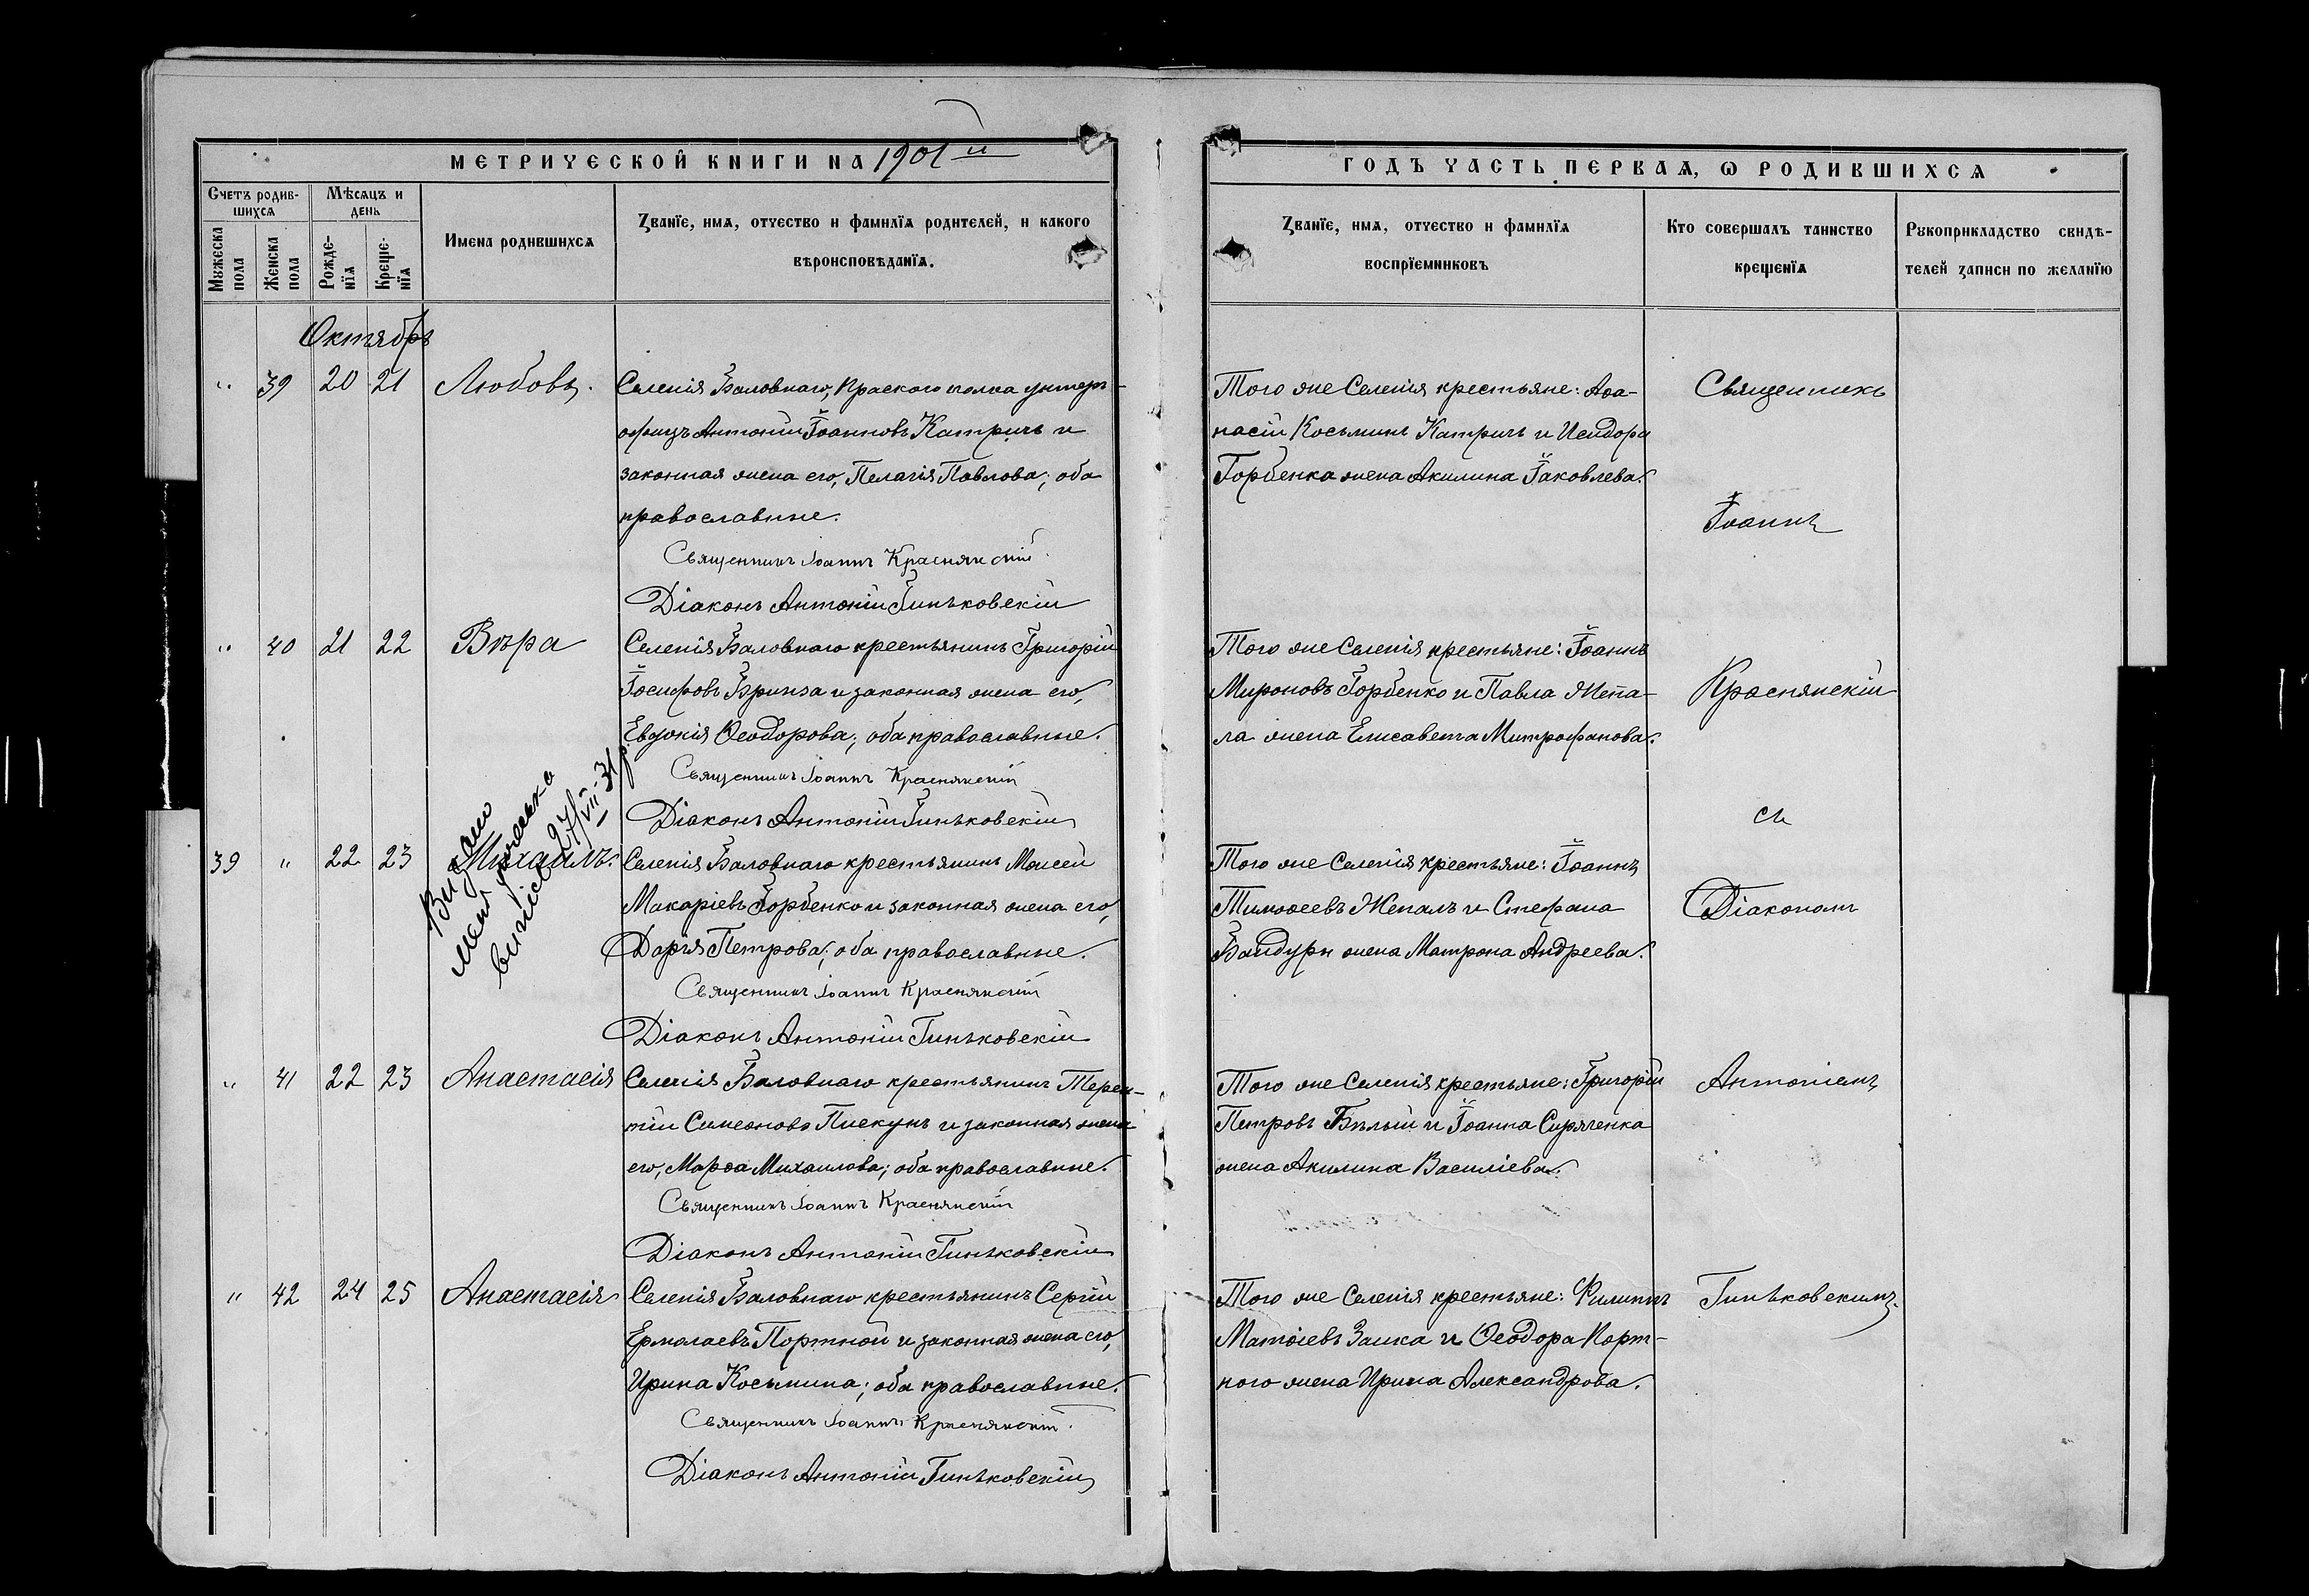 МЕТРИЧЕСКОЙ КНИГИ НА 1901 й
ГОДЪ ЧАСТЬ ПЕРВАЯ, Ѡ РОДИВШИХСЯ
Счетъ родив-
шихся
Мѣсяцъ и
день
Мужеска
пола
Женска
пола
Рожде-
нїя
Креще-
нїя
Имена родившихся
Званїе, имя, отчество и фамилїя родителей, и какого
вѣроисповѣданїя.
Званїе, имя, отчество и фамилїя
воспрїемниковъ
Кто совершалъ таинство
крещенїя
Рукоприкладство свидѣ-
телей записи по желанїю
Октябрь
" 39 20 21 Любовь.
Селенія Баловнаго, полка унтеръ-
офицъ Антоній Іоанновъ Катричъ и
законная жена его, Пелагія Павлова; оба
православные.
Священникъ Іоаннъ Краснянскій
Діаконъ Антоній Гиньковскій
Того же Селенія крестьяне: Аѳа-
насій Косьминъ Катричъ и Исидора
Горбенка жена Акилина Іаковлева.
" 40 21 22 Вѣра
Селенія Баловнаго крестьянинъ Григорій
Іосифовъ Бринза и законная жена его,
Евдокія Ѳеодорова; оба православные.
Священникъ Іоаннъ Краснянскій
Діаконъ Антоній Гиньковскій
Того же Селенія крестьяне: Іоаннъ
Мироновъ Горбенко и Павла Жепа-
ла жена Елисавета Митрофанова.
39 " 22 23 Михаилъ.
Видано
витіс 27/VII-31р.
Селенія Баловнаго крестьянинъ Моисей
Макаріевъ Горбенко и законная жена его,
Дарія Петрова; оба православные.
Священникъ Іоаннъ Краснянскій
Діаконъ Антоній Гиньковскій
Того же Селенія крестьяне: Іоаннъ
Тимоѳеевъ Жепалъ и Стефана
Бандуры жена Матрона Андреева.
" 41 22 23 Анастасія
Селенія Баловнаго крестьянинъ Терен-
тій Симеоновъ Пиекунъ и законная жена
его, Марѳа Михаилова; оба православные.
Священникъ Іоаннъ Краснянскій
Діаконъ Антоній Гиньковскій
Того же Селенія крестьяне: Григорій
Петровъ Бѣлый и Іоанна Сиряченка
жена Акилина Василіева.
" 42 24 25 Анастасія
Селенія Баловнаго крестьянинъ Сергій
Ермолаевъ Портной и законная жена его,
Ирина Косьмина; оба православные.
Священникъ Іоаннъ Краснянскій.
Діаконъ Антоній Гиньковскій
Того же Селенія крестьяне: Филиппъ
Матѳіевъ Заика и Ѳеодора Порт-
ного жена Ирина Александрова.
Священникъ
Іоаннъ
Краснянскій
съ
Діакономъ
Антоніемъ
Гиньковскимъ.